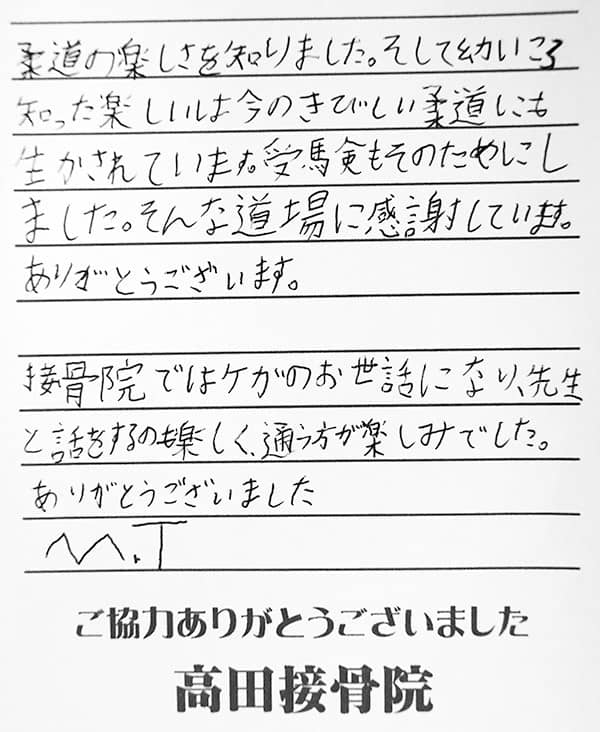 柔道の楽しさを知りました。そして幼いころ
知った楽しいは今のきびしい柔道にも
生かされています。受馬険もそのためにし
ました。そんな道場に感謝しています。
ありがとうございます。
接骨院ではケガのお世話になり、先生
と話をするのも楽しく、通う方が楽しみでした。
ありがとうございました
M.T
ご協力ありがとうございました
高田接骨院